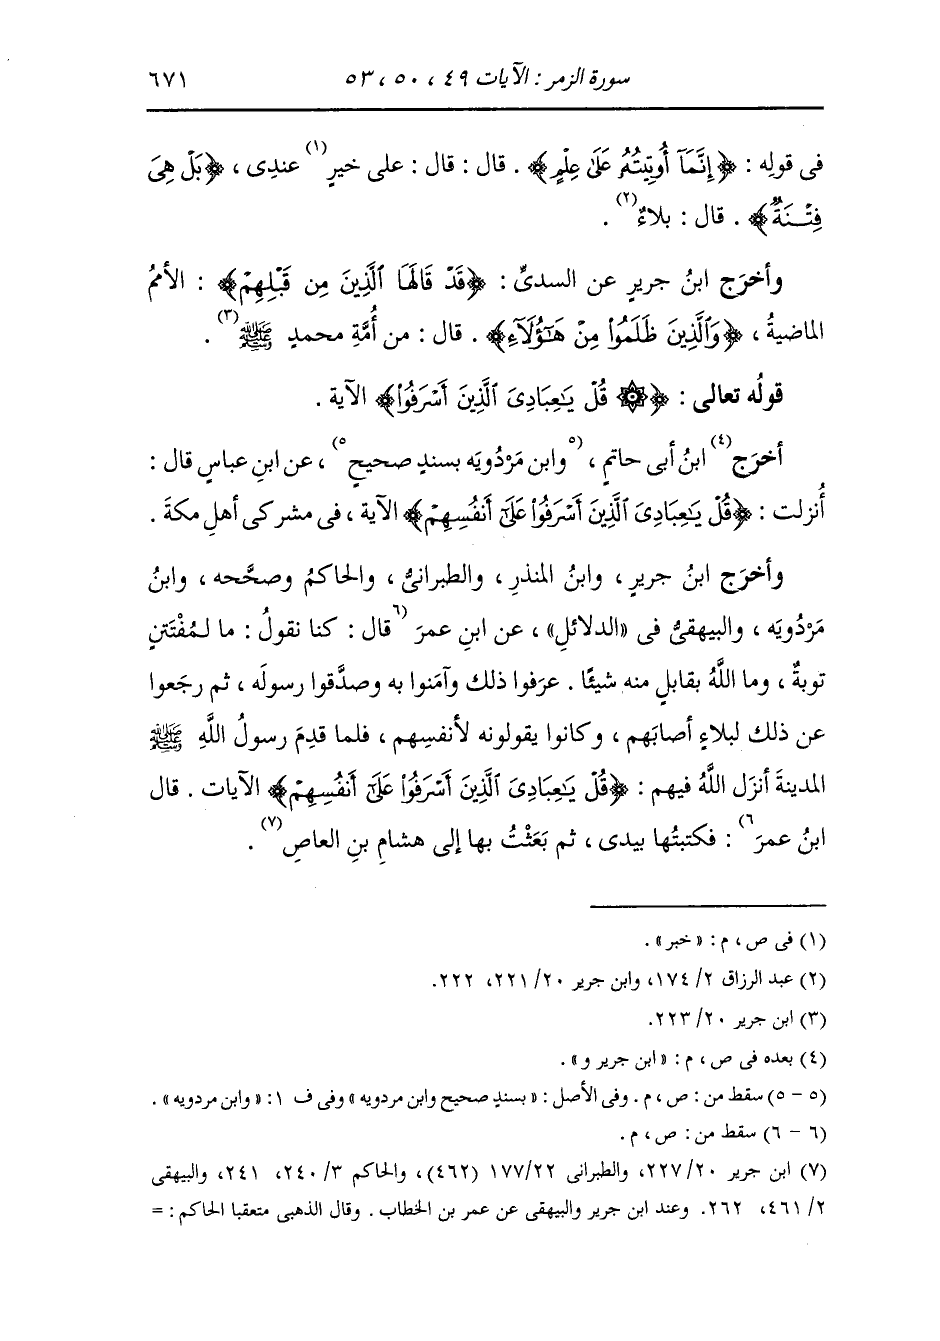 سورة الزمر : الآيات ٤٩ ، ٥٠ ، ٥٣ ٦٧١
فى قولِه : ﴿إِنَّمَآ أُوتِيتُهُۥ عَلَىٰ عِلْمٍ﴾ . قال : قال : على خيرٍ(١) عندِى ، ﴿بَلْ هِىَ
فِتْنَةٌ﴾ . قال : بلاءٌ(٢) .
وأخرَج ابنُ جريرٍ عن السدىِّ : ﴿قَدْ قَالَهَا ٱلَّذِينَ مِن قَبْلِهِمْ﴾ : الأممُ
الماضيةُ ، ﴿وَٱلَّذِينَ ظَلَمُوا۟ مِنْ هَٰٓؤُلَآءِ﴾ . قال : من أُمَّةِ محمدٍ ﷺ(٣) .
قولُه تعالى : ﴿۞ قُلْ يَٰعِبَادِىَ ٱلَّذِينَ أَسْرَفُوا۟﴾ الآية .
أخرَج(٤) ابنُ أبى حاتمٍ ، (٥وابن مَرْدُويَه بسندٍ صحيحٍ٥) ، عن ابنِ عباسٍ قال :
أُنزلت : ﴿قُلْ يَٰعِبَادِىَ ٱلَّذِينَ أَسْرَفُوا۟ عَلَىٰٓ أَنفُسِهِمْ﴾ الآية ، فى مشركى أهلِ مكةَ .
وأخرَج ابنُ جريرٍ ، وابنُ المنذرِ ، والطبرانىُّ ، والحاكمُ وصحَّحه ، وابنُ
مَرْدُويَه ، والبيهقىُّ فى «الدلائلِ» ، عن ابنِ عمرَ (٦قال : كنا نقولُ : ما لـمُفْتَتنٍ
توبةٌ ، وما اللَّهُ بقابلٍ منه شيئًا . عرَفوا ذلك وآمَنوا به وصدَّقوا رسولَه ، ثم رجَعوا
عن ذلك لبلاءٍ أصابَهم ، وكانوا يقولونه لأنفسِهم ، فلما قدِمَ رسولُ اللَّهِ ﷺ
المدينةَ أنزَل اللَّهُ فيهم : ﴿قُلْ يَٰعِبَادِىَ ٱلَّذِينَ أَسْرَفُوا۟ عَلَىٰٓ أَنفُسِهِمْ﴾ الآيات . قال
ابنُ عمرَ٦) : فكتبتُها بيدى ، ثم بَعَثْتُ بها إلى هشامِ بنِ العاصِ(٧) .
(١) فى ص ، م : « خبر » .
(٢) عبد الرزاق ٢/ ١٧٤، وابن جرير ٢٠/ ٢٢١، ٢٢٢.
(٣) ابن جرير ٢٠/ ٢٢٣.
(٤) بعده فى ص ، م : « ابن جرير و » .
(٥ - ٥) سقط من : ص ، م . وفى الأصل : « بسند صحيح وابن مردويه » وفى ف ١: « وابن مردويه » .
(٦ - ٦) سقط من : ص ، م .
(٧) ابن جرير ٢٠/ ٢٢٧، والطبرانى ٢٢/ ١٧٧ (٤٦٢) ، والحاكم ٣/ ٢٤٠، ٢٤١، والبيهقى
٢/ ٤٦١، ٢٦٢. وعند ابن جرير والبيهقى عن عمر بن الخطاب . وقال الذهبى متعقبا الحاكم : =